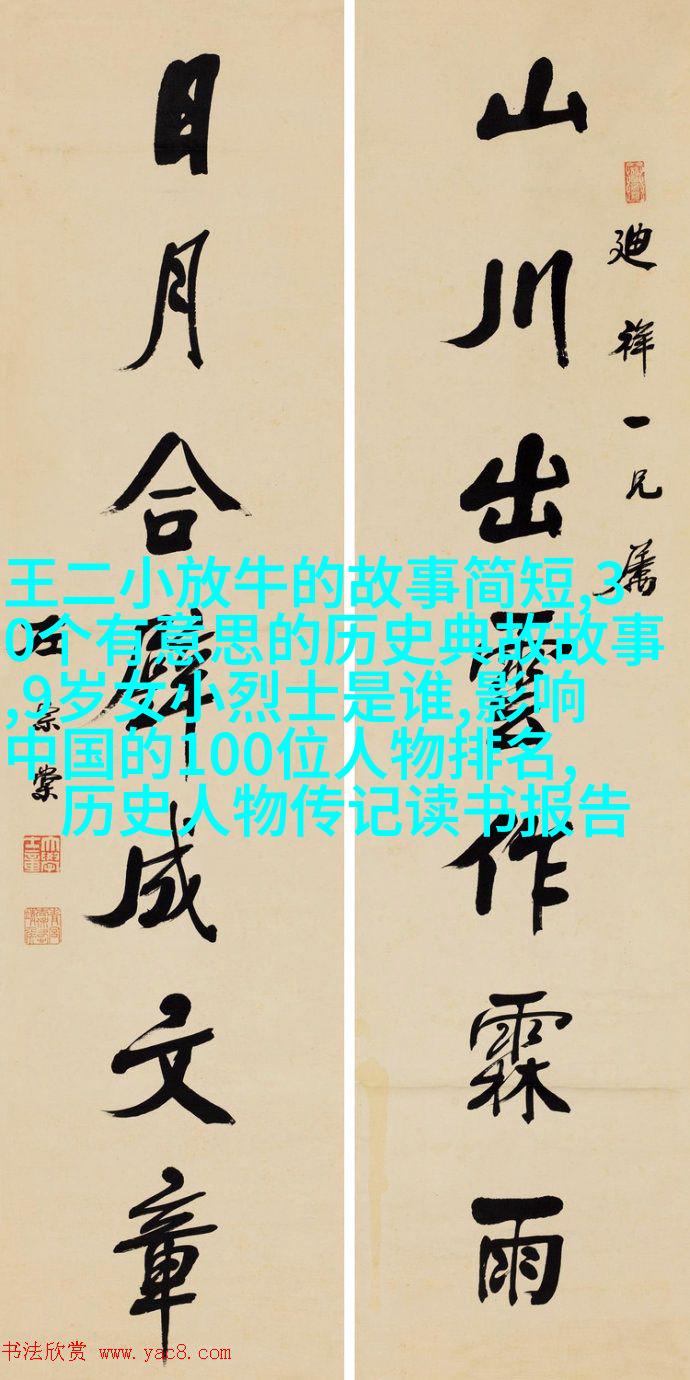 山川出雲作霖雨
廸祥一兄屬
日月合璧成文章
左宗棠
王二小放牛的故事简短,3
0个有意思的历史典故故事
,9岁女小烈士是谁,影响
中国的100位人物排名,
历史人物传记读书报告
书法欣赏 www.yac8.com